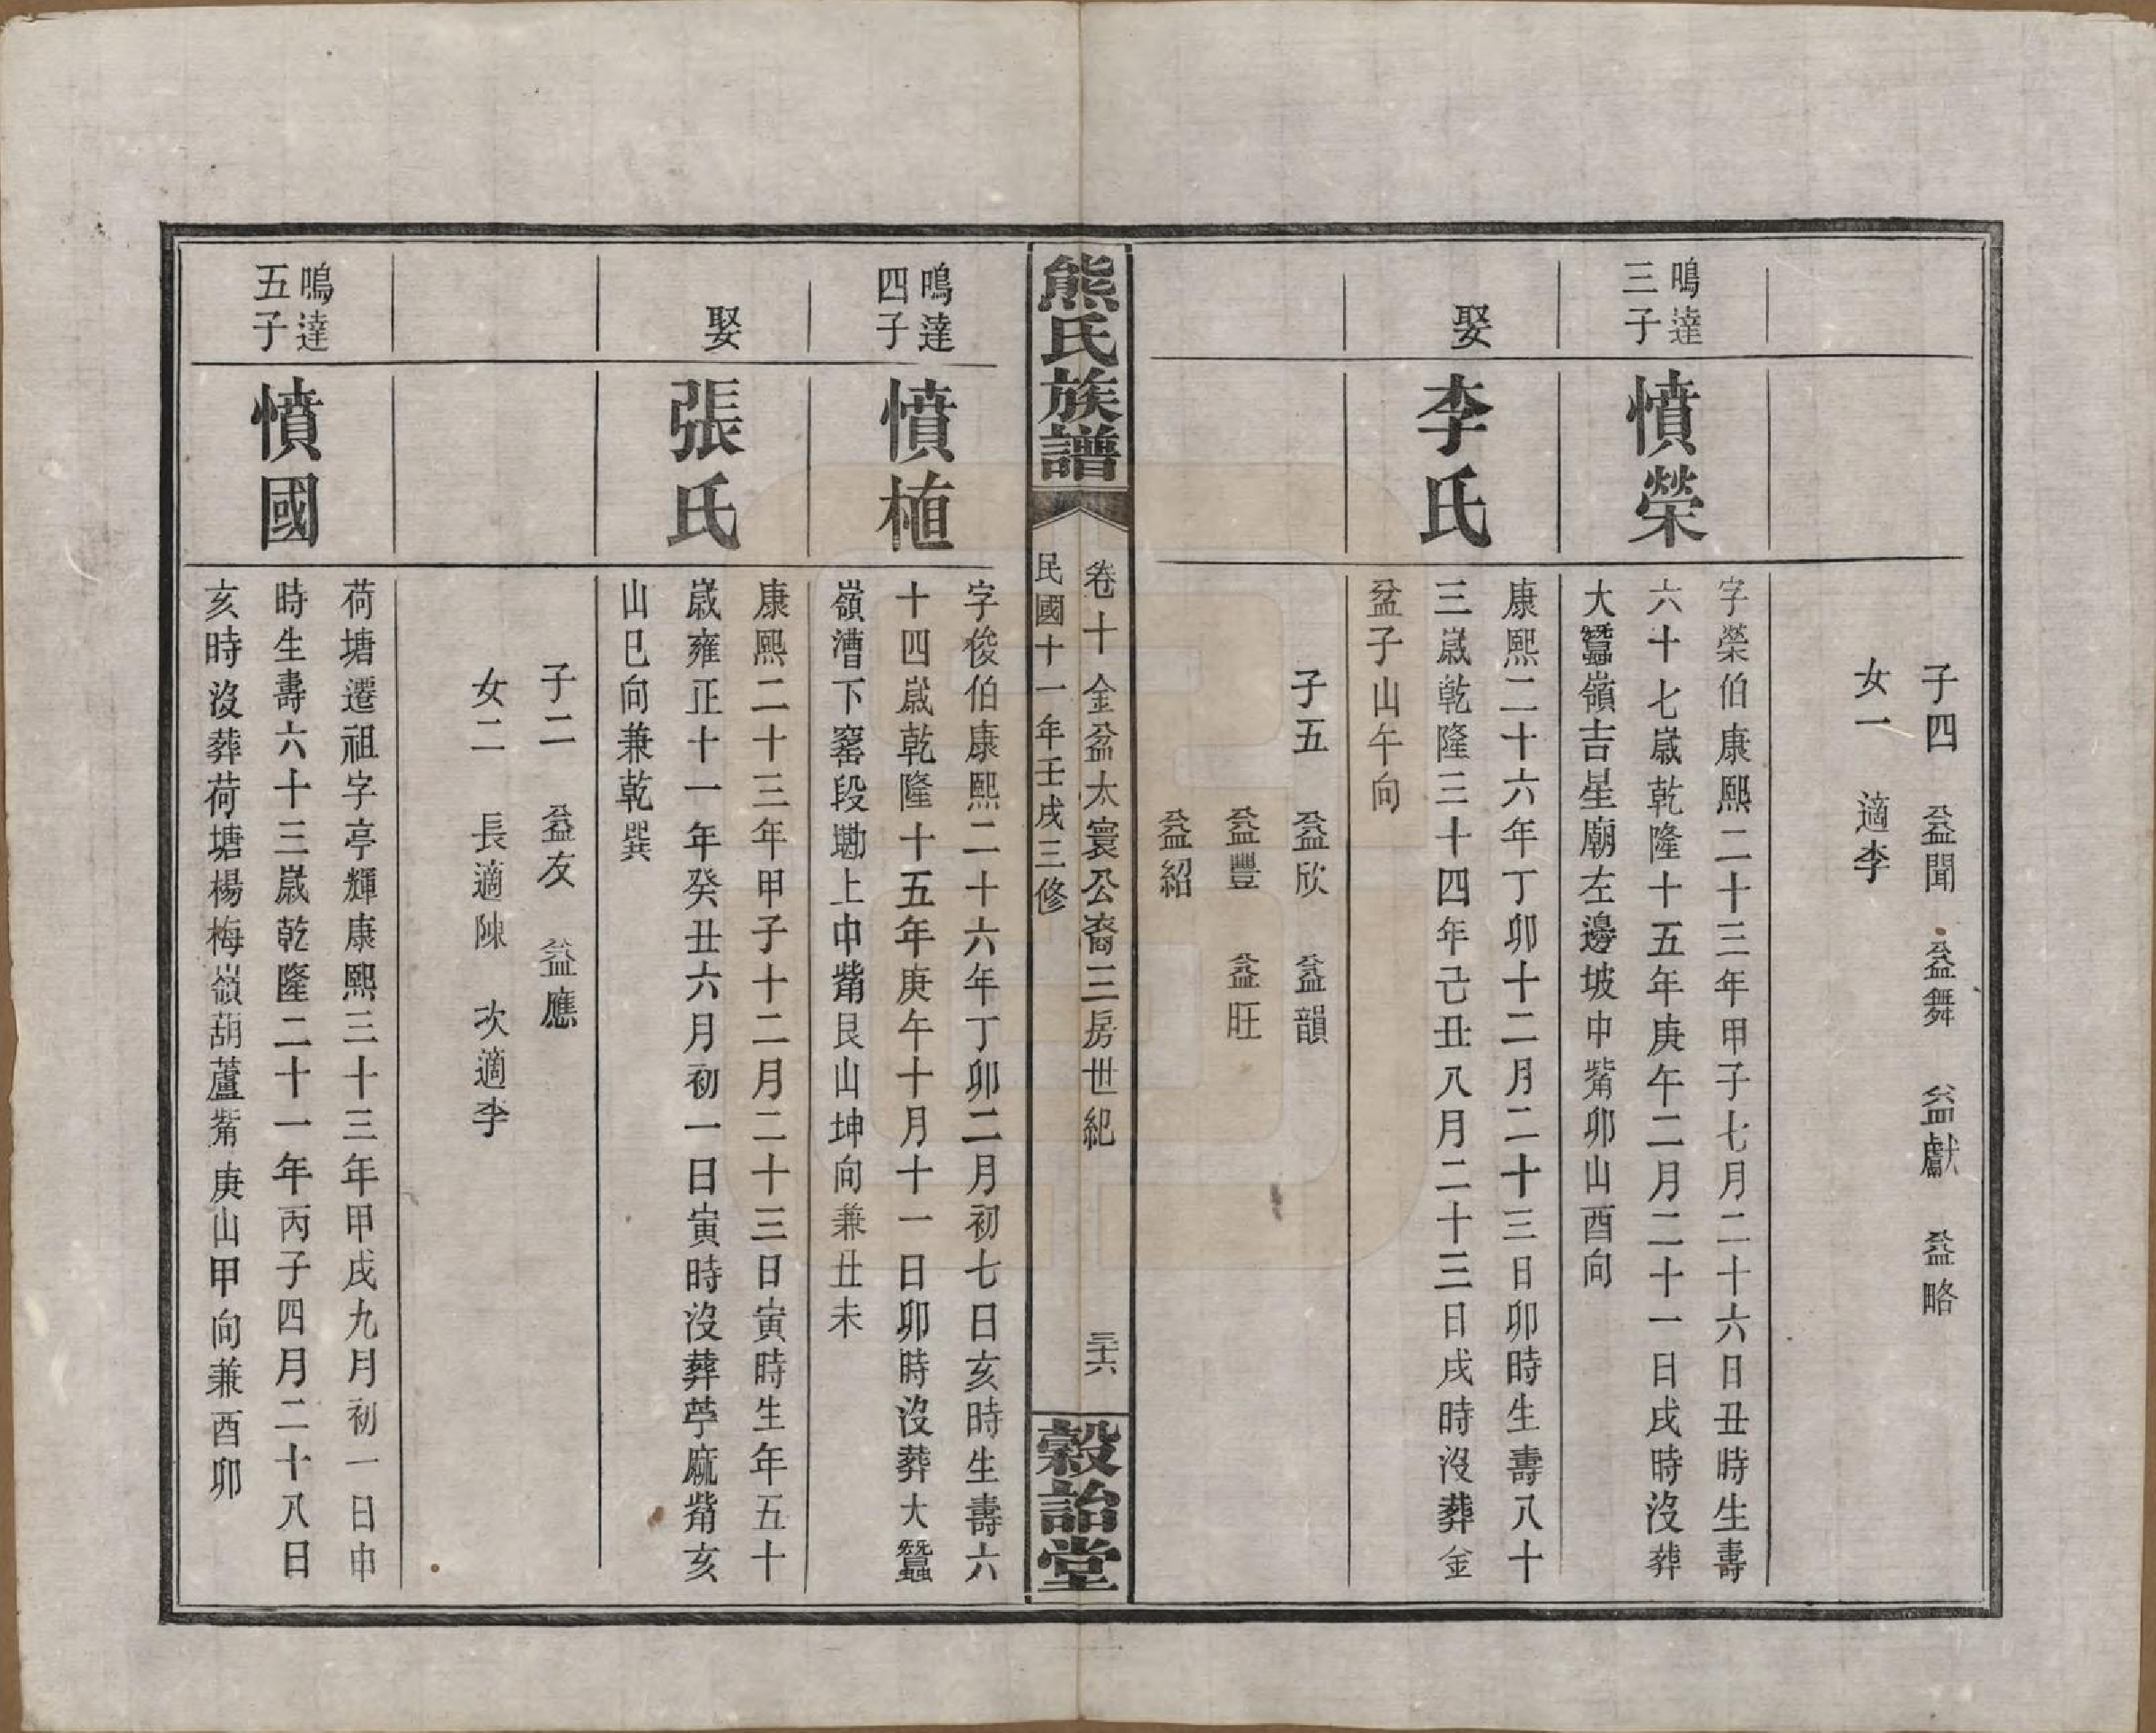 子四　益聞　益舞　益獻　益略
女一　適李
鳴達
三子
憤榮
字榮伯康熙二十三年甲子七月二十六日丑時生壽
六十七歲乾隆十五年庚午二月二十一日戌時沒葬
大蠶嶺吉星廟左邊坡中觜卯山酉向
娶
李氏
康熙二十六年丁卯十二月二十三日卯時生壽八十
三歲乾隆三十四年己丑八月二十三日戌時沒葬金
盆子山午向
子五　益欣　益韻
益豐　益旺
益紹
熊氏族譜
卷十　金盆太寰公裔三房世紀　三十六
民國十一年壬戌三修
穀詒堂
鳴達
四子
憤植
字俊伯康熙二十六年丁卯二月初七日亥時生壽六
十四歲乾隆十五年庚午十月十一日卯時沒葬大蠶
嶺漕下窰段勘上中觜艮山坤向兼丑未
娶
張氏
康熙二十三年甲子十二月二十三日寅時生年五十
歲雍正十一年癸丑六月初一日寅時沒葬苧麻觜亥
山巳向兼乾巽
子二　益友　益應
女二　長適陳　次適李
鳴達
五子
憤國
荷塘遷祖字亭輝康熙三十三年甲戌九月初一日申
時生壽六十三歲乾隆二十一年丙子四月二十八日
亥時沒葬荷塘楊梅嶺葫蘆觜庚山甲向兼酉卯